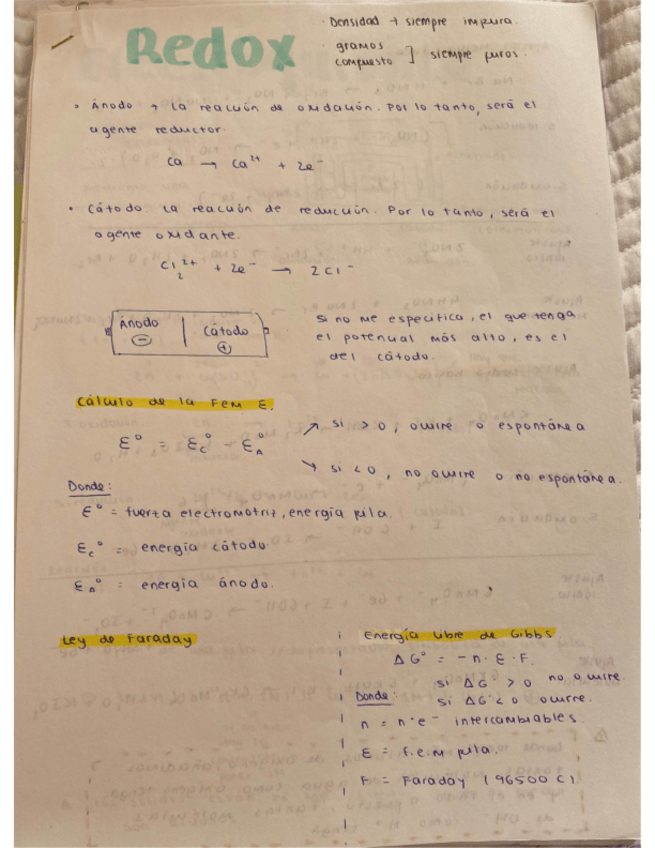 Redox
· Densidad → siempre impura.
gramos
compuesto ] siempre puros.
• Ánodo → La reacción de oxidación. Por lo tanto, será el
agente reductor.
Ca → Ca²⁺ + 2e⁻
• Cátodo La reacción de reducción. Por lo tanto, será el
agente oxidante.
Cl₂²⁺ + 2e⁻ → 2Cl⁻
Ánodo | Cátodo
⊖ ⊕
Si no me especifica, el que tenga
el potencial más alto, es el
del cátodo.
Cálculo de la Fem ε.
ε° = ε_c° - ε_A°
↗ si > 0, ocurre o espontánea
↘ si < 0, no ocurre o no espontánea.
Donde:
ε° = fuerza electromotriz, energía pila.
ε_c° = energía cátodo.
ε_A° = energía ánodo.
Ley de Faraday
Energía libre de Gibbs
ΔG° = -n· ε · F.
si ΔG > 0 no ocurre
si ΔG < 0 ocurre.
Donde:
n = n°e⁻ intercambiables.
ε = f.e.m pila.
F = Faraday (96500 C)